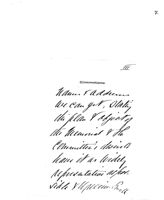 III
Names & addresses
we can get, stating
the plan & object of
the Memorial & the
Committee's desire to
have it as widely
representative as poss-